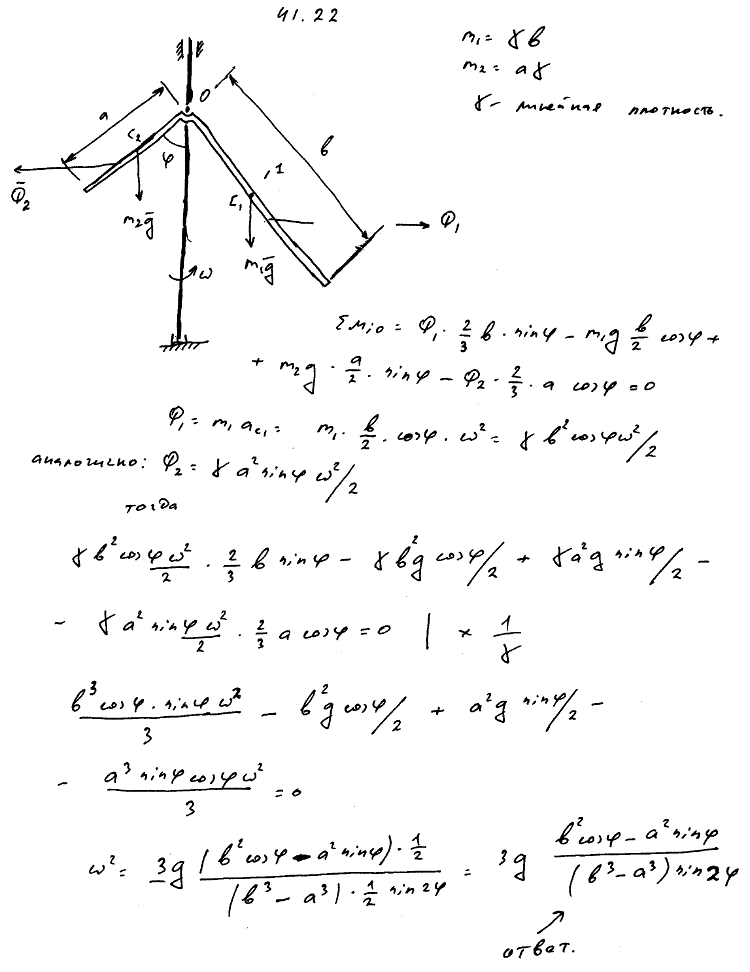 41.22
m₁ = γ в
m₂ = a γ
γ - линейная плотность.
O
a
c₂
φ
в
, 1
c₁
Φ̄₂
Φ₁
m₂ḡ
m₁ḡ
ω
ΣMᵢₒ = Φ₁ · 2/3 в · sinφ − m₁g в/2 cosφ +
+ m₂g · a/2 · sinφ − Φ₂ · 2/3 · a cosφ = 0
Φ₁ = m₁ a_c₁ = m₁ · в/2 · cosφ · ω² = γ в² cosφ ω²/2
аналогично: Φ₂ = γ a² sinφ ω²/2
тогда
γ в² cosφ ω²/2 · 2/3 в sinφ − γ в² g cosφ/2 + γ a² g sinφ/2 −
− γ a² sinφ ω²/2 · 2/3 a cosφ = 0 | × 1/γ
в³ cosφ · sinφ ω²/3 − в² g cosφ/2 + a² g sinφ/2 −
− a³ sinφ cosφ ω²/3 = 0
ω² = 3g (в² cosφ − a² sinφ) · 1/2 / (в³ − a³) · 1/2 sin 2φ = 3g в² cosφ − a² sinφ / (в³ − a³) sin 2φ
ответ.